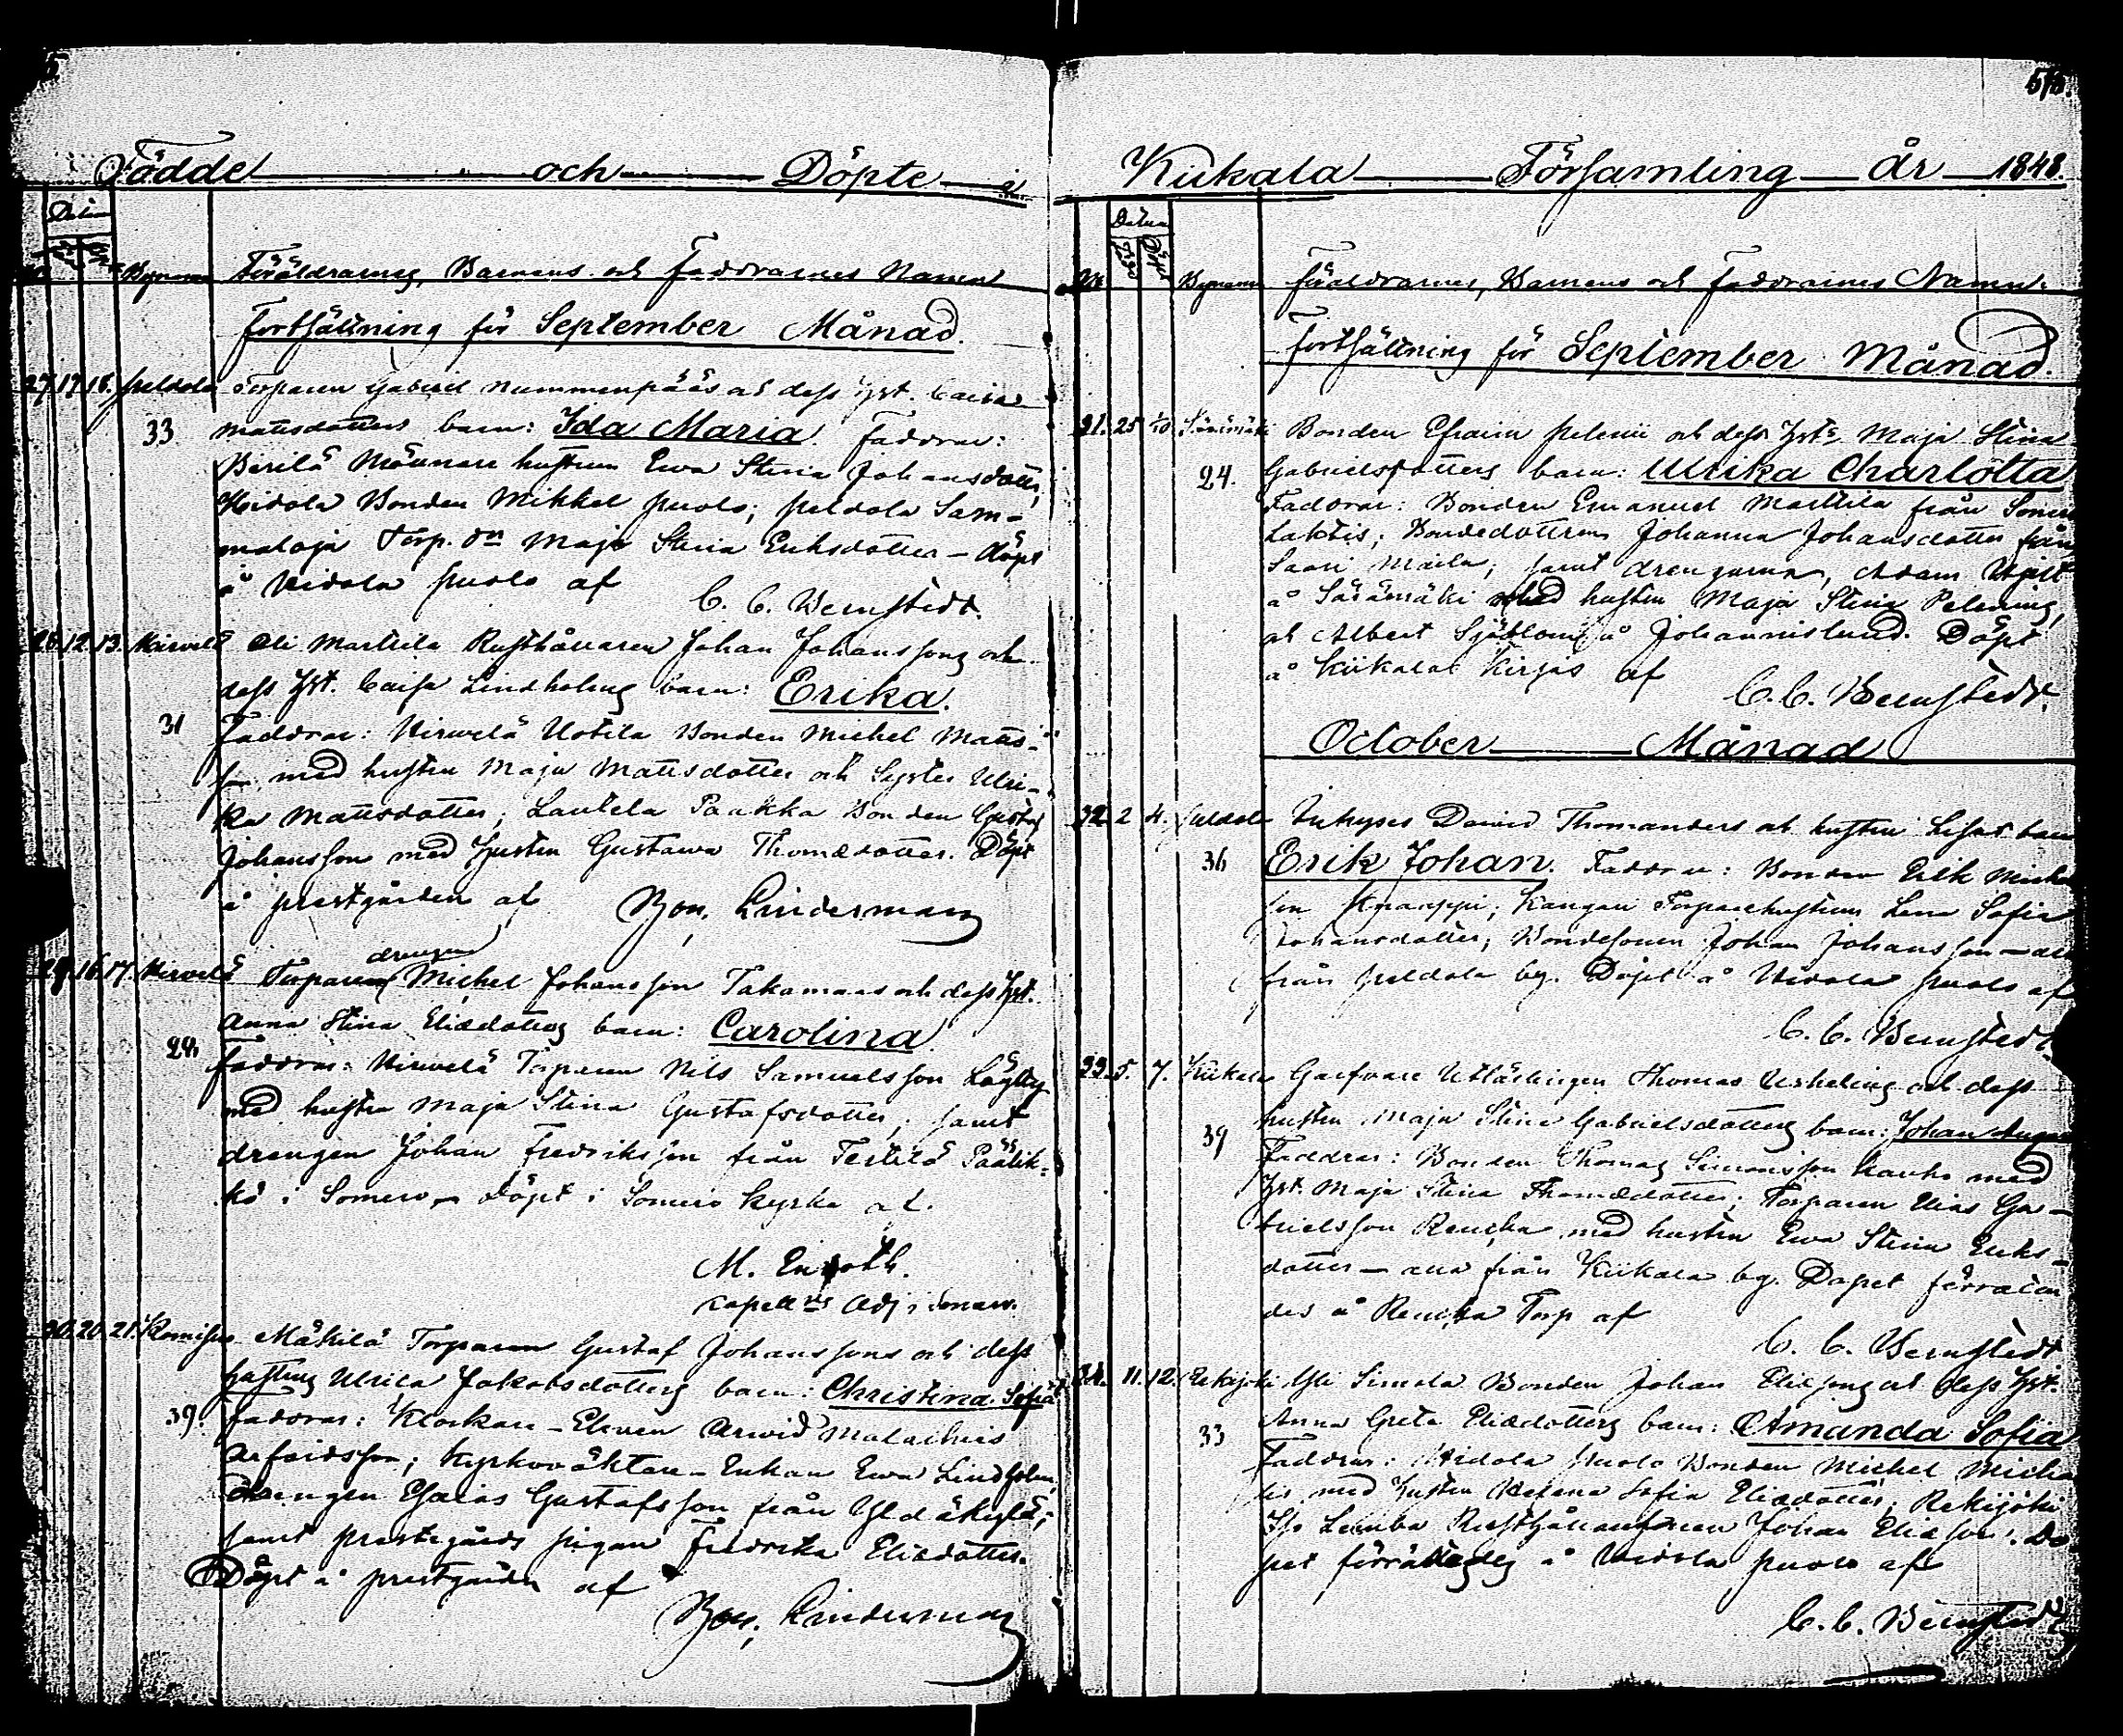 Födde och Döpte i
Datum
Byname Föräldrarnes, Barnens och Faddrarnes Namn
Fortsättning för September Månad.
27. 17. 18. Peldola Torparen Gabriel Nummenpääs och dess Hst. Caisa
33 Mattsdotters barn: Ida Maria. Faddrar:
Mäunare hustrun Ewa Stina Johansdotter,
Hidola Bonden Mikkel Puolo; Peldola Sam-
maloja Torp. Maja Stina Eriksdotter – döpt
å Hidola Puolo af
C. C. Bernstedt.
28. 12. 13. Hirvelä Oli Marttila Rusthållaren Johan Johanssons och
dess Hst. Caisa Lindholms barn: Erika.
31 Faddrar: Hirwelä Uotila Bonden Michel Matts-
son med hustru Maja Mattsdotter och Syster Ulri-
ka Mattsdotter, Lautela Paakka Bonden Gustaf
Johansson med Hustru Gustawa Thomædotter. Döpt
å prestgården af
Bon. Linderman
29. 16. 17. Hirvelä Torparen drengen Michel Johansson Takamaas och dess Hst.
Anna Stina Eliædotters barn: Carolina.
29. Faddrar: Hirwelä Torparen Nils Samuelsson
med hustru Maja Stina Gustafsdotter, samt
drengen Johan Fredriksson från Terttilä Päälik-
kö i Somero – döpt i Somero kyrka af.
M. Enroth.
Capellns Adj. i Somero.
30. 20. 21. Komisuo Mäkilä Torparen Gustaf Johanssons och dess
Hustrus Ulrica Jakobsdotters barn: Christina Sofia
39. Faddrar: Klockare-Eleven Arwid Malachias
Arfvidsson; Kyrkowäktare-Enkan Ewa Lindholm,
Drengen Esaias Gustafsson från Yldäkylä;
samt prestegårds pigan Fredrika Eliædotter.
Döpt å prestgården af
Bon. Linderman
Kiikala Församling År 1848.
Datum
No Byname Föräldrarnes, Barnens och Faddrarnes Namn.
Fortsättning för September Månad.
31. 25 1/10 Särämäki Bonden Efraim Pelenii och dess Hst Maja Stina
24. Gabrielsdotters barn: Ulrika Charlotta
Faddrar: Bonden Emanuel Marttila från Somero
Lahtis; Bondedottren Johanna Johansdotter från
Saari Maila; samt drengarna, Adam
å Särämäki med hustru Maja Stina Pelenius,
och Albert Sjöblom å Johannislund. Döpt
å Kiikala af
C. C. Bernstedt.
October Månad
32. 2 4. Peldola Inhyses Dawid Thomanders och hustru Lisas barn
36 Erik Johan. Faddrar: Bonden Erik Michels
son Knaappi; Kangan Torparehustrun Lena Sofia
Johansdotter; Bondesonen Johan Johansson – alla
från Peldola by. Döpt å Hidola Puolo af
C. C. Bernstedt.
33. 5. 7. Kiikala Garfvare Utlärlingen Thomas och dess
39 hustru Maja Stina Gabrielsdotters barn: Johan August
Faddrar: Bonden Thomas Simonsson med
Hst. Maja Stina Thomædotter; Torparen Elias Ga-
brielsson Rencka med hustru Ewa Stina Eriks-
dotter – alla från Kiikala by. Dopet förrättades
å Rencka Torp af
C. C. Bernstedt
34. 11. 12. Rekijoki Yli Simola Bonden Johan Eliæsons och dess Hst.
33 Anna Greta Eliædotters barn: Amanda Sofia
Faddrar: Hidola Puolo Bonden Michel Michels-
son med Hustru Helena Sofia Eliædotter; Rekijoki
Iso Lemba Rusthållaresonen Johan Eliæson. Do-
pet förrättades å Hidola Puolo af
C. C. Bernstedt